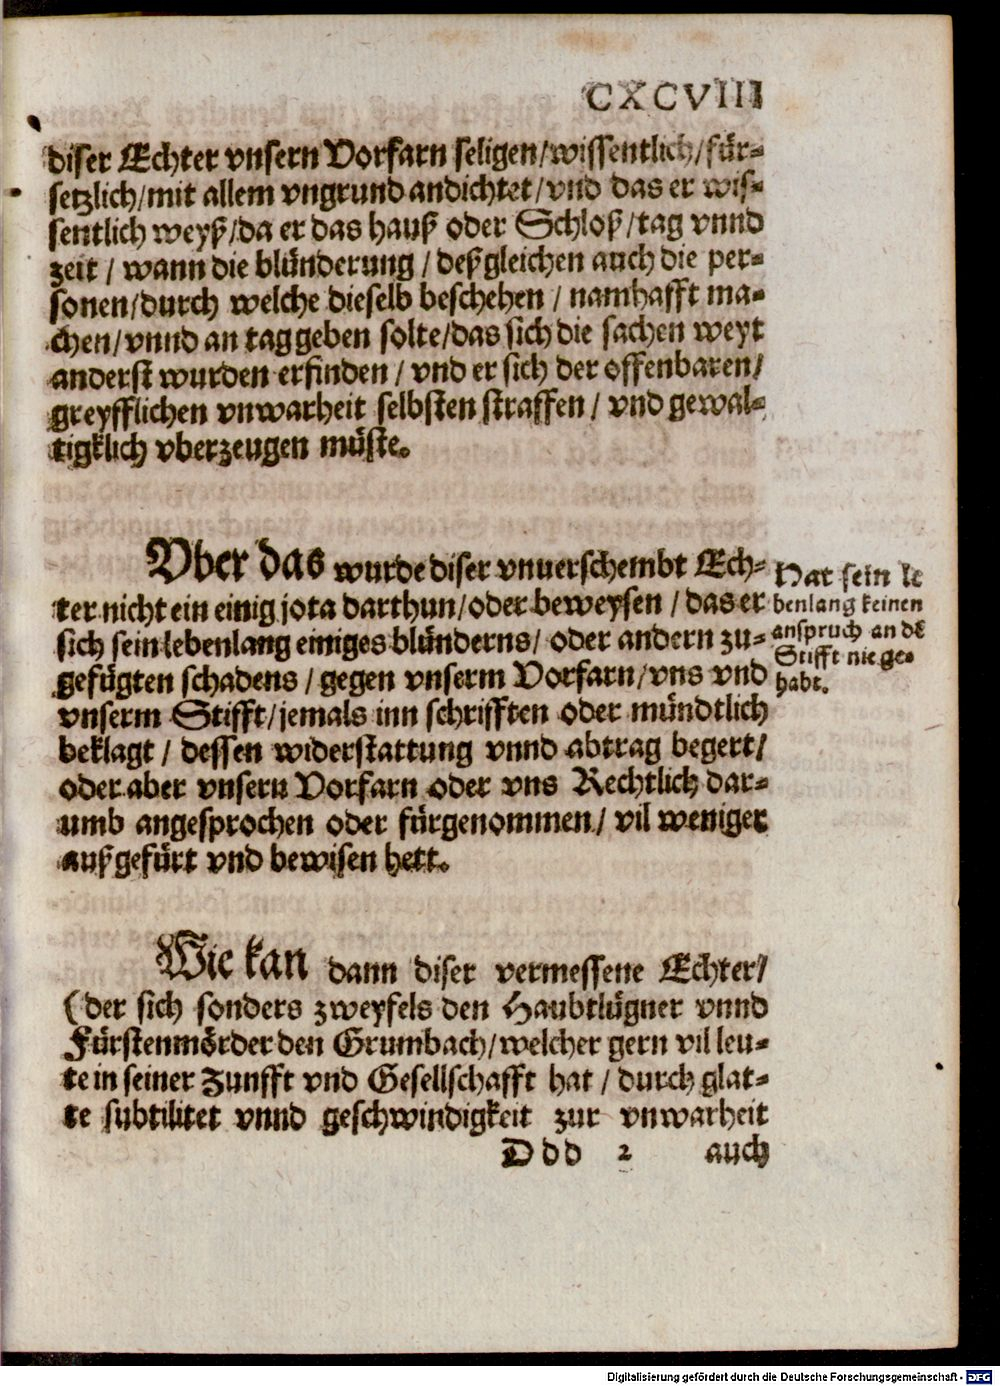 CXCVIII
diser Echter vnsern Vorfarn seligen/wissentlich/für-
setzlich/mit allem vngrund andichtet/vnd das er wis-
sentlich weyß/da er das hauß oder Schloß/tag vnnd
zeit / wann die blünderung / deßgleichen auch die per-
sonen/durch welche dieselb beschehen / namhafft ma-
chen/vnnd an tag geben solte/das sich die sachen weyt
anderst wurden erfinden / vnd er sich der offenbaren/
greyfflichen vnwarheit selbsten straffen / vnd gewal-
tigklich vberzeugen müste.
Vber das wurde diser vnuerschembt Ech-
ter nicht ein einig jota darthun/oder beweysen / das er
sich sein lebenlang einiges blünderns/ oder andern zu-
gefügten schadens / gegen vnserm Vorfarn/vns vnd
vnserm Stifft/jemals inn schrifften oder mündtlich
beklagt / dessen widerstattung vnnd abtrag begert/
oder aber vnsern Vorfarn oder vns Rechtlich dar-
umb angesprochen oder fürgenommen/ vil weniger
außgefürt vnd bewisen hett.
Hat sein le
benlang keinen
anspruch an dẽ
Stifft nie ge-
habt.
Wie kan dann diser vermessene Echter/
(der sich sonders zweyfels den Haubtlügner vnnd
Fürstenmörder den Grumbach/welcher gern vil leu-
te in seiner Zunfft vnd Gesellschafft hat / durch glat-
te subtilitet vnnd geschwindigkeit zur vnwarheit
D d d 2 auch
Digitalisierung gefördert durch die Deutsche Forschungsgemeinschaft - DFG